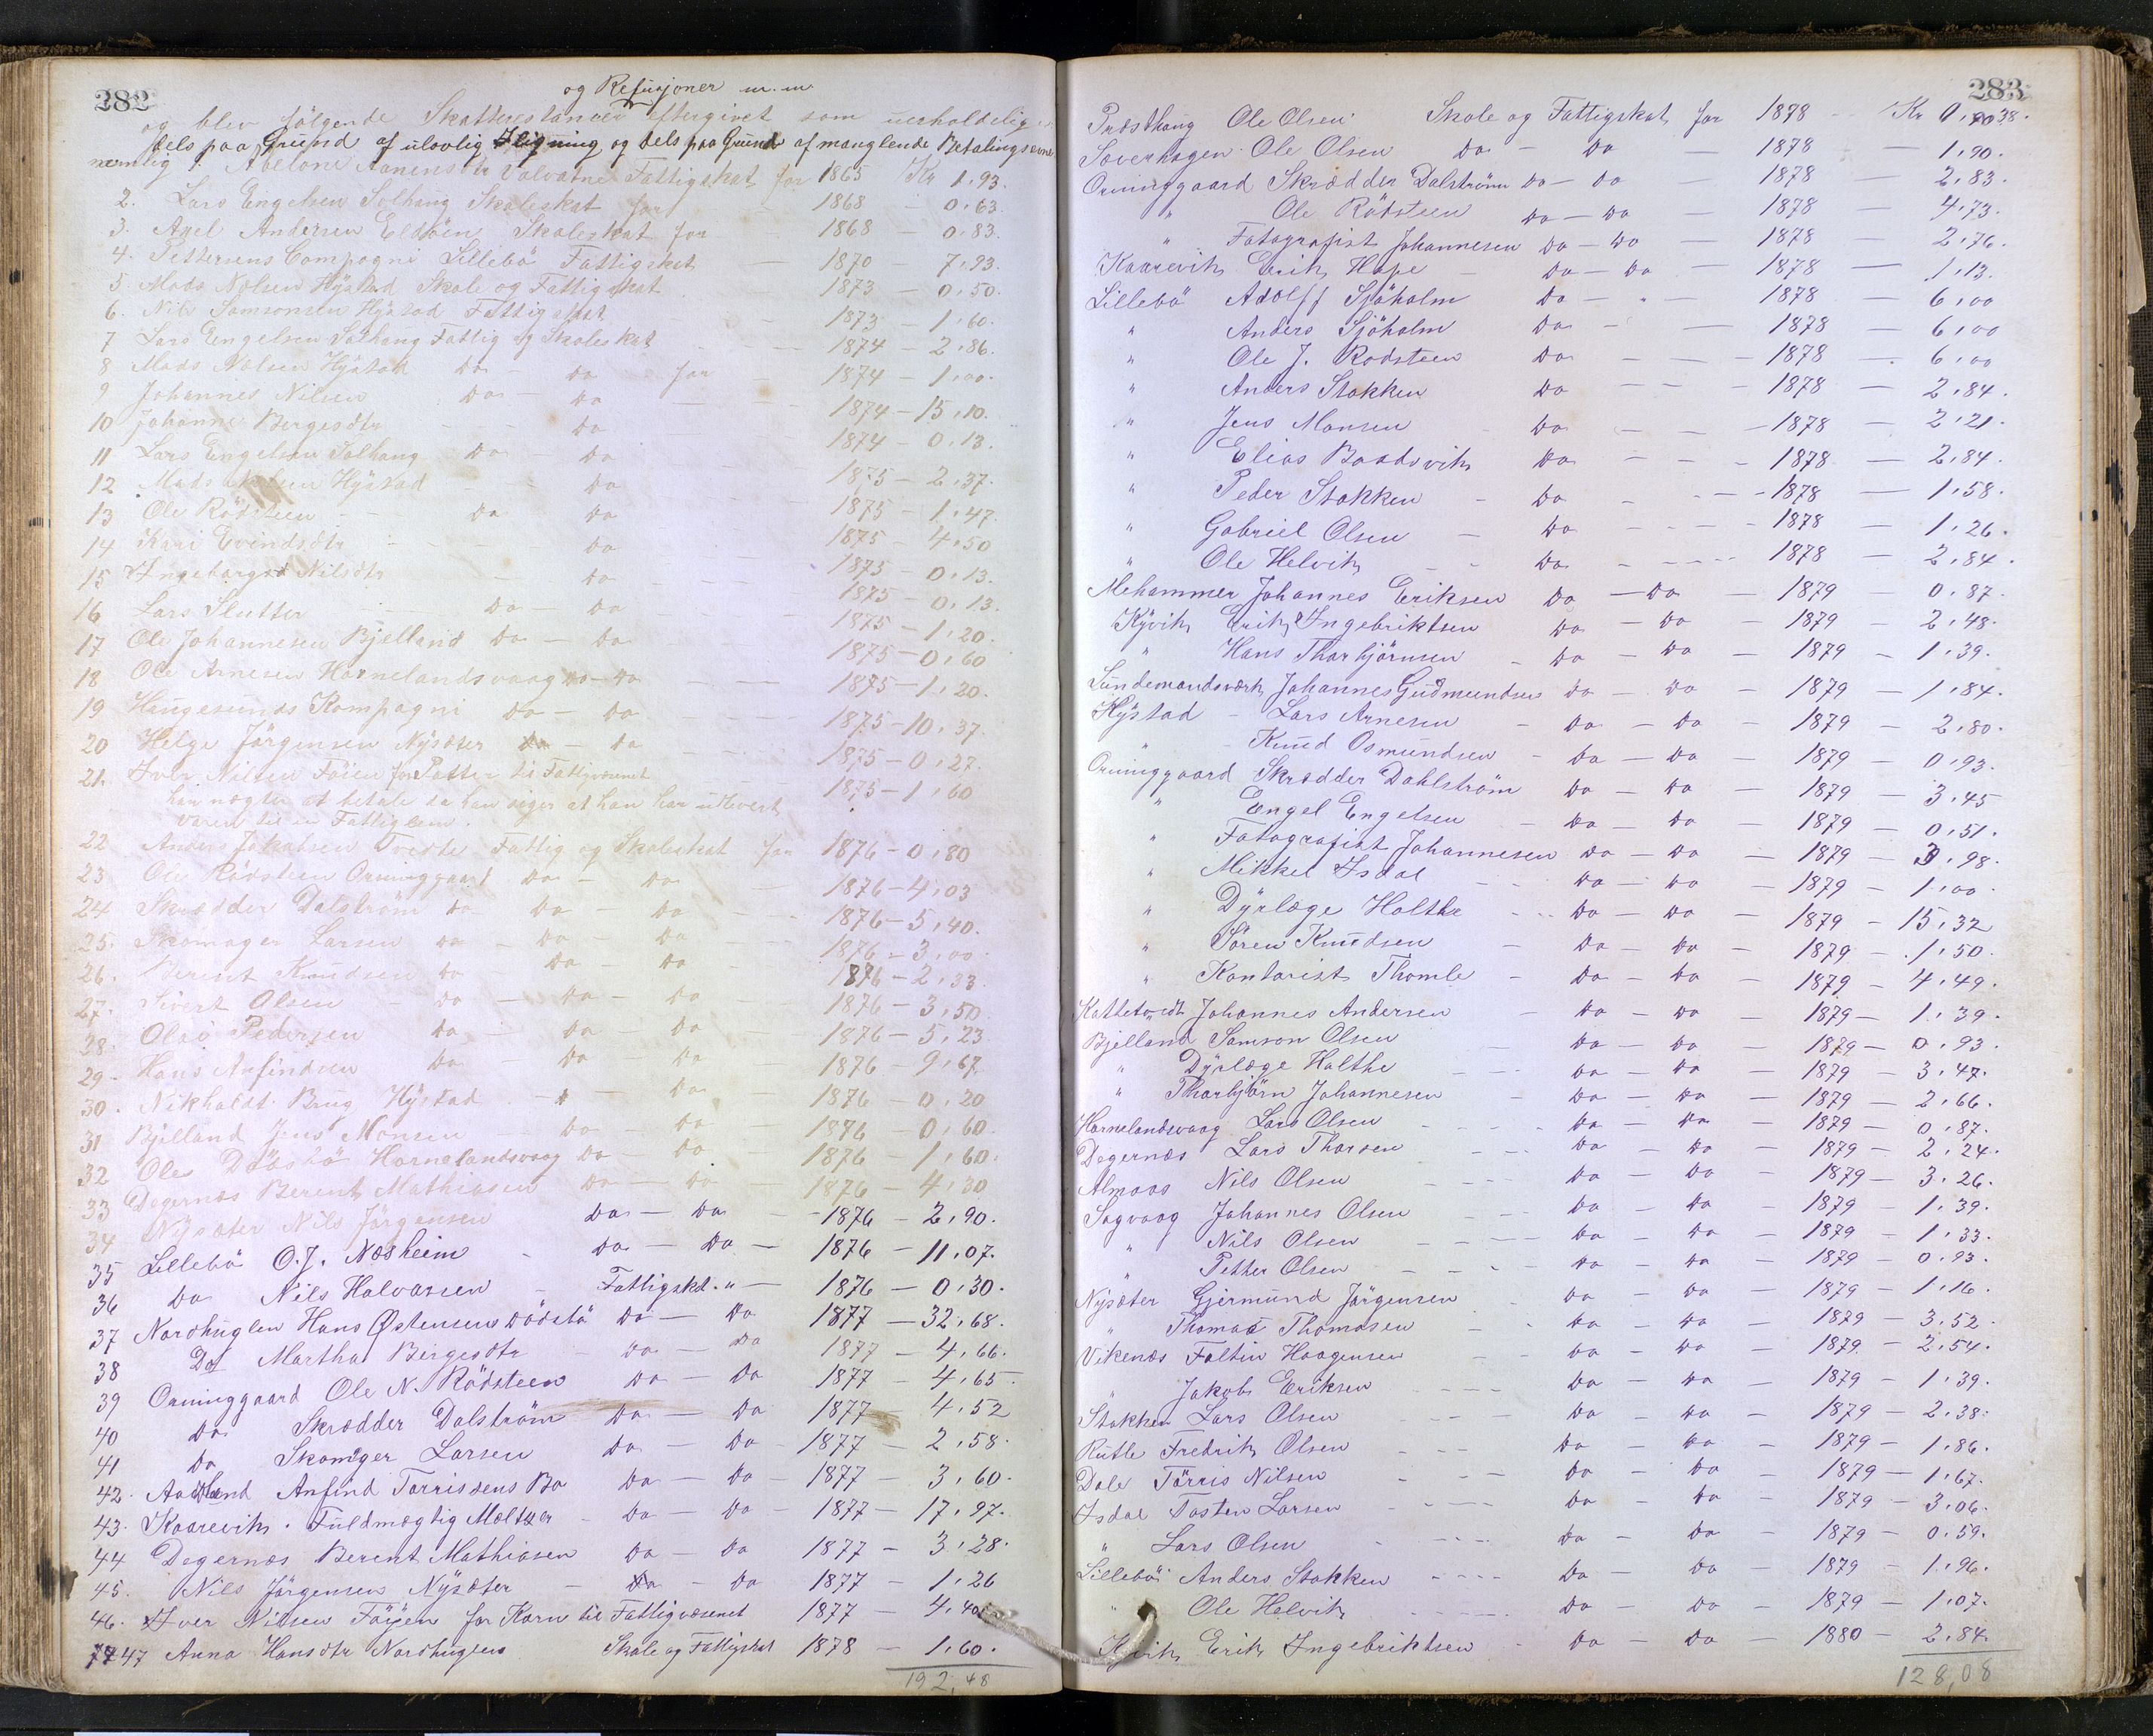 282
og Refusjoner m.m.
og blev følgende Skatterestancer eftergivet som uerholdelige
dels paa Grund af ulovlig Ligning og dels paa Grund af manglende Betalingsevne
nemlig 1 Abelone Aanensdtr Valvatne Fattigskat for 1865 Kr 1.93.
2. Lars Engelsen Solhaug Skoleskat for 1868 - 0.63.
3. Axel Andersen Eldöen Skoleskat for 1868 - 0.83.
4. Pettersens Compagni Lillebö Fattigskat - 1870 - 7.93.
5. Mads Nelsen Hÿstad Skole og Fattigskat 1873 - 0.50.
6. Nils Samsonsen Hÿstad Fattigskat - 1873 - 1.60.
7 Lars Engelsen Solhaug Fattig og Skoleskat - 1874 - 2.86.
8 Mads Nelsen Hÿstad Do - Do for - 1874 - 1.00.
9 Johannes Nilsen Do - Do - 1874 - 15.10.
10 Johanne Bergesdtr - - Do 1874 - 0.13.
11 Lars Engelsen Solhaug Do - Do - 1875 - 2.37.
12 Mads Nelsen Hÿstad - Do 1875 - 1.47.
13 Ole Rödsteen - Do - Do 1875 - 4.50
14 Kari Evindsdtr - - Do 1875 - 0.13.
15 Ingeborg Nilsdtr - Do - 1875 - 0.13.
16 Lars Slutter - Do - Do 1875 - 1.20.
17 Ole Johannesen Bjelland Do - Do 1875 - 0.60
18 Ole Arnesen Hornelandsvaag Do - Do - 1875 - 1.20.
19 Haugesunds Kompagni Do - Do 1875 - 10.37.
20 Helge Jörgensen Nÿsæter Do - Do - 1875 - 0.27.
21. Iver Nilsen Föien for Potter til Fattigvæsenet 1875 - 1.60
han nægter at betale da han siger at han har utlevert
varen til en Fattiglem.
22 Anders Jakobsen Tveite Fattig og Skoleskat for 1876 - 0.80
23 Ole Rödsteen Orninggaard Do - Do - 1876 - 4.03
24 Skrædder Dalström Do - Do - Do - 1876 - 5.40.
25. Skomager Larsen Do - Do - Do - 1876 - 3.00.
26. Berent Knudsen Do Do - Do - 1876 - 2.33.
27. Sivert Olsen - Do - Do - Do 1876 - 3.50.
28. Olai Pedersen Do - Do - Do - 1876 - 5.23
29. Hans Anfindsen Do Do Do - 1876 - 9.67.
30. Nikholdt Brug Hÿstad - - Do - 1876 - 0.20
31 Bjelland Jens Monsen Do - Do - 1876 - 0.60.
32 Ole Dösbö Hornelandsvaag Do - Do - 1876 - 1.60.
33 Degernæs Berent Mathiasen Do - Do - 1876 - 4.30
34 Nÿsæter Nils Jörgensen Do - Do - 1876 - 2.90.
35 Lillebö O. J. Næsheim - Do - Do - 1876 - 11.07.
36 Do Nils Halvorsen - Fattigskt. " - 1876 - 0.30.
37 Nordhuglen Hans Østensen Dödsbö Do - Do 1877 - 32.68.
38 Do Martha Bergesdtr - Do - Do 1877 - 4.66.
39 Orninggaard Ole N. Rödsteen Do - Do 1877 - 4.65.
40 Do Skrædder Dalström Do - Do 1877 4.52
41 Do Skomager Larsen Do - Do - 1877 - 2.58.
42. Aadland Anfind Torrisdens Bo Do - Do - 1877 - 3.60.
43. Kaarevik. Fuldmægtig Meltzer - Do - Do - 1877 - 17.97.
44 Degernæs Berent Mathiasen Do - Do 1877 - 3.28.
45. Nils Jörgensen Nÿsæter - Do - Do 1877 - 1.26
46. Iver Nilsen Föÿen for Korn til Fattigvæsenet 1877 - 4.40
47 Anna Hansdtr Nordhuglen Skole og Fattigskat 1878 - 1.60.
192,48
283
Præsthaug Ole Olsen Skole og Fattigskat for 1878 - Kr 0.38.
Søverhagen Ole Olsen Do - Do - 1878 - 1.90.
Orninggaard Skrædder Dalström Do - Do - 1878 - 2.83.
" Ole Rödsteen Do - Do - 1878 - 4.73.
" Fotografist Johannesen Do - Do - 1878 - 2.76.
Kaarevik Erik Hope - Do - Do - 1878 - 1.13.
Lillebö Adolff Sjöholm Do - " - 1878 - 6.00
" Anders Sjöholm Do - - 1878 - 6.00
" Ole J. Rodsteen Do - - 1878 - 6.00
" Anders Stokken Do - - 1878 - 2.84.
" Jens Monsen Do - - 1878 - 2.21.
" Elias Baadsvik Do - - 1878 - 2.84.
" Peder Stokken - Do - - 1878 - 1.58.
" Gabriel Olsen - Do - - 1878 - 1.26.
" Ole Helvik - Do - - 1878 - 2.84.
Mehammer Johannes Eriksen Do - Do - 1879 0.87.
Kÿvik Erik Ingebriktsen Do - Do - 1879 - 2.48.
" Hans Thorbjörnsen - Do - Do - 1879 - 1.39.
Lundemandsværk Johannes Gudmundsen Do - Do - 1879 - 1.84.
Hÿstad - Lars Arnesen - Do - Do - 1879 - 2.80.
" Knud Osmundsen - Do - Do - 1879 - 0.93.
Orninggaard Skrædder Dahlström Do - Do - 1879 - 3.45
" Engel Engelsen - Do - Do - 1879 - 0.51.
" Fotografist Johannesen Do - Do - 1879 - 3.98.
" Mikkel Isdal - Do - Do - 1879 - 1.00.
" Dÿrlæge Holthe - Do - Do - 1879 - 15.32
" Sören Knudsen - Do - Do - 1879 - 1.50.
" Kontorist Thomle - Do - Do - 1879 - 4.49.
Johannes Andersen - Do - Do - 1879 - 1.39.
Bjelland Samson Olsen - Do - Do - 1879 - 0.93.
" Dÿrlæge Holthe - Do - Do - 1879 - 3.47.
" Thorbjörn Johannesen - Do - Do - 1879 - 2.66.
Hornelandsvaag Lars Olsen - Do - Do - 1879 - 0.87.
Degernæs Lars Thorsen - Do - Do - 1879 - 2.24.
Almaas Nils Olsen - Do - Do - 1879 - 3.26.
Sagvaag Johannes Olsen - Do - Do - 1879 - 1.39.
" Nils Olsen - Do - Do - 1879 - 1.33.
" Petter Olsen - Do - Do - 1879 - 0.93.
Nÿsæter Gjermund Jörgensen - Do - Do - 1879 - 1.16.
" Thomas Thomasen - Do - Do - 1879 - 3.52.
Vikenæs Faltin Haagensen - Do - Do - 1879 - 2.54.
" Jakob Eriksen - Do - Do - 1879 - 1.39.
Stokken Lars Olsen - Do - Do - 1879 - 2.38.
Rutle Fredrik Olsen - Do - Do - 1879 - 1.86.
Dale Törris Nilsen - Do - Do - 1879 - 1.67.
Isdal Tosten Larsen - Do - Do - 1879 - 3.06.
" Lars Olsen - Do - Do - 1879 - 0.59.
Lillebö Anders Stokken - Do - Do - 1879 - 1.96.
" Ole Helvik - Do - Do - 1879 - 1.07.
Erik Ingebriktsen - Do - Do - 1880 - 2.84.
128,08